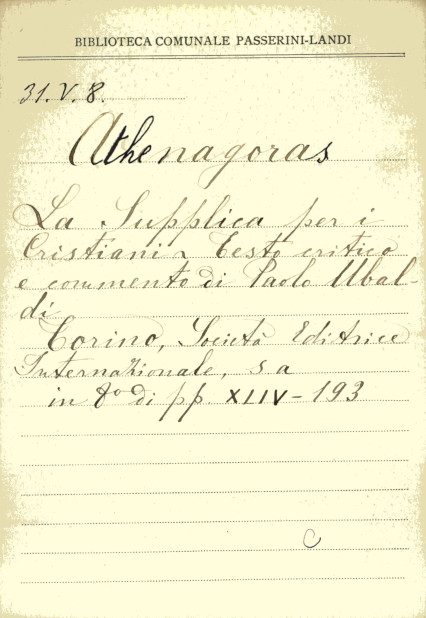 BIBLIOTECA COMUNALE PASSERINI-LANDI
31. V. 8.
Athenagoras
La Supplica per i
Cristiani ~ Testo critico
e commento di Paolo Ubal-
di
Torino, Società Editrice
Internazionale, s a
in 8° di pp XLIV - 193
C